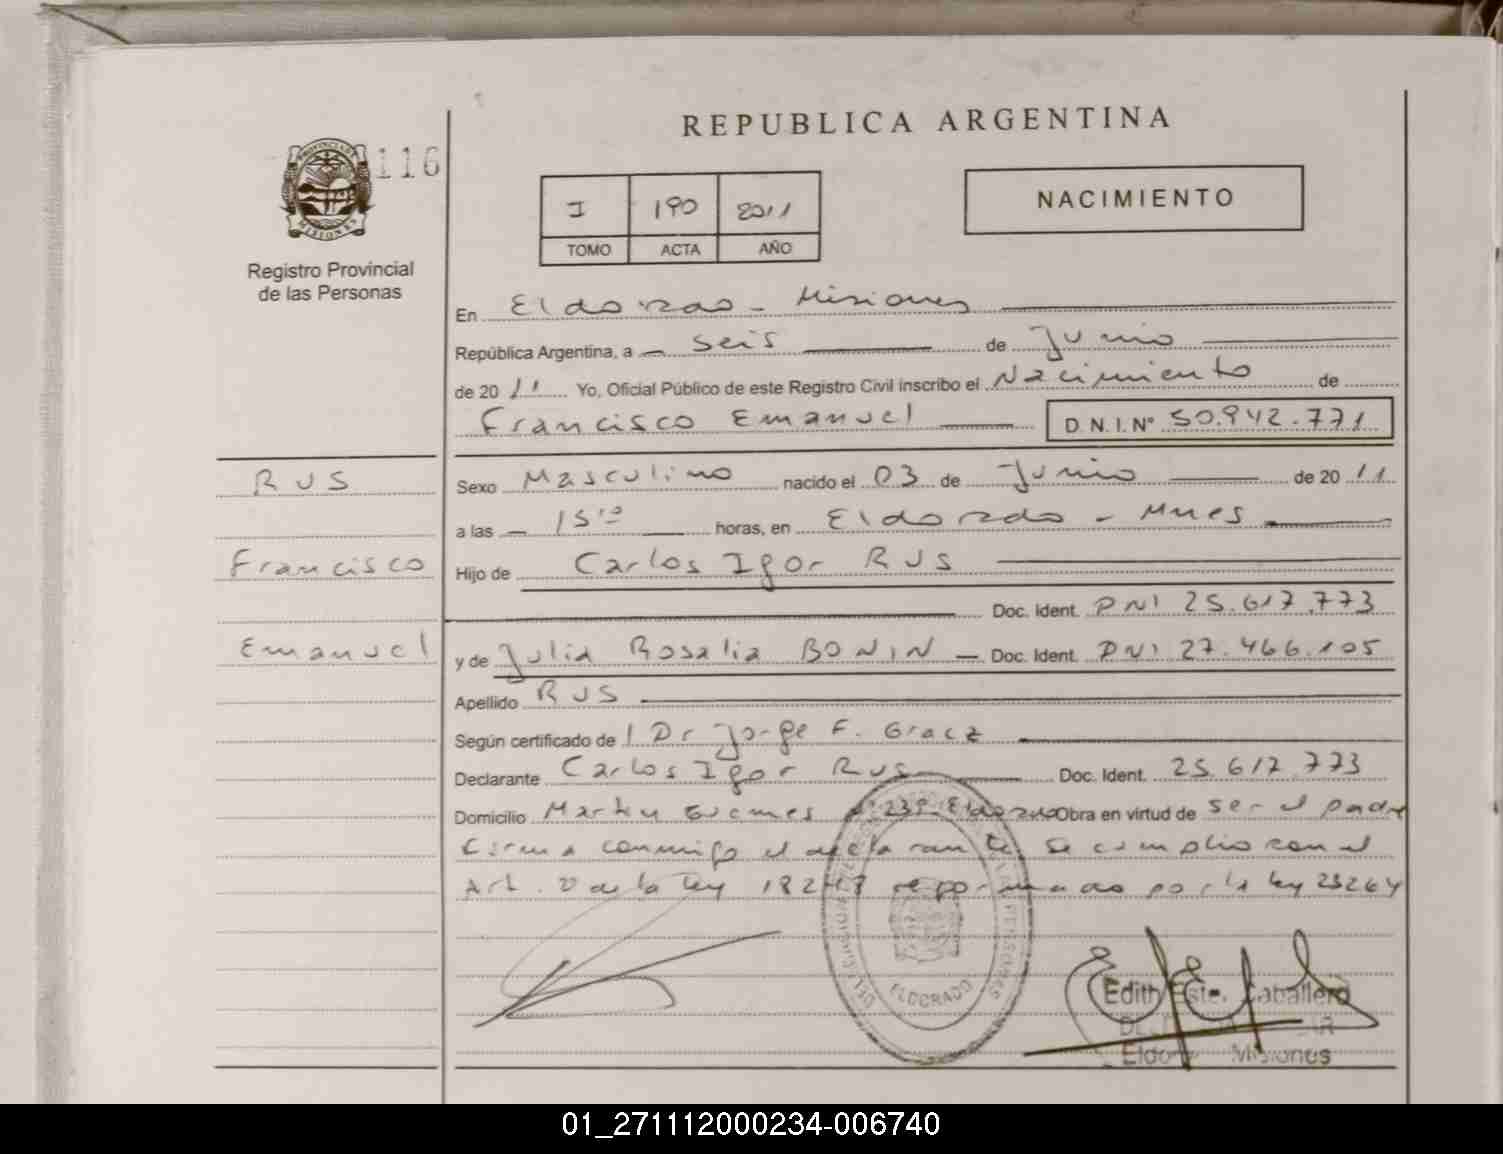 REPUBLICA ARGENTINA
116
PROVINCIA DE MISIONES
Registro Provincial
de las Personas
I 190 2011
TOMO ACTA AÑO
NACIMIENTO
En Eldorado - Misiones
República Argentina, a seis de Junio
de 2011 Yo, Oficial Público de este Registro Civil inscribo el Nacimiento de
Francisco Emanuel D.N.I. Nº 50.942.771
RUS
Francisco
Emanuel
Sexo Masculino nacido el 03 de Junio de 2011
a las 15:10 horas, en Eldorado - Mnes
Hijo de Carlos Igor RUS
Doc. Ident. DNI 25.617.773
y de Julia Rosalia BONIN Doc. Ident. DNI 27.466.105
Apellido RUS
Según certificado de Dr Jorge F. Gracz
Declarante Carlos Igor Rus Doc. Ident. 25.617.773
Domicilio Martin Guemes Nº 239 Eldorado Obra en virtud de ser el padre
Firma conmigo el declarante, se cumplio con el
Art. de la ley 18248 reformado por la ley 23264
ELDORADO
Edith Este. Caballero
Misiones
01_271112000234-006740